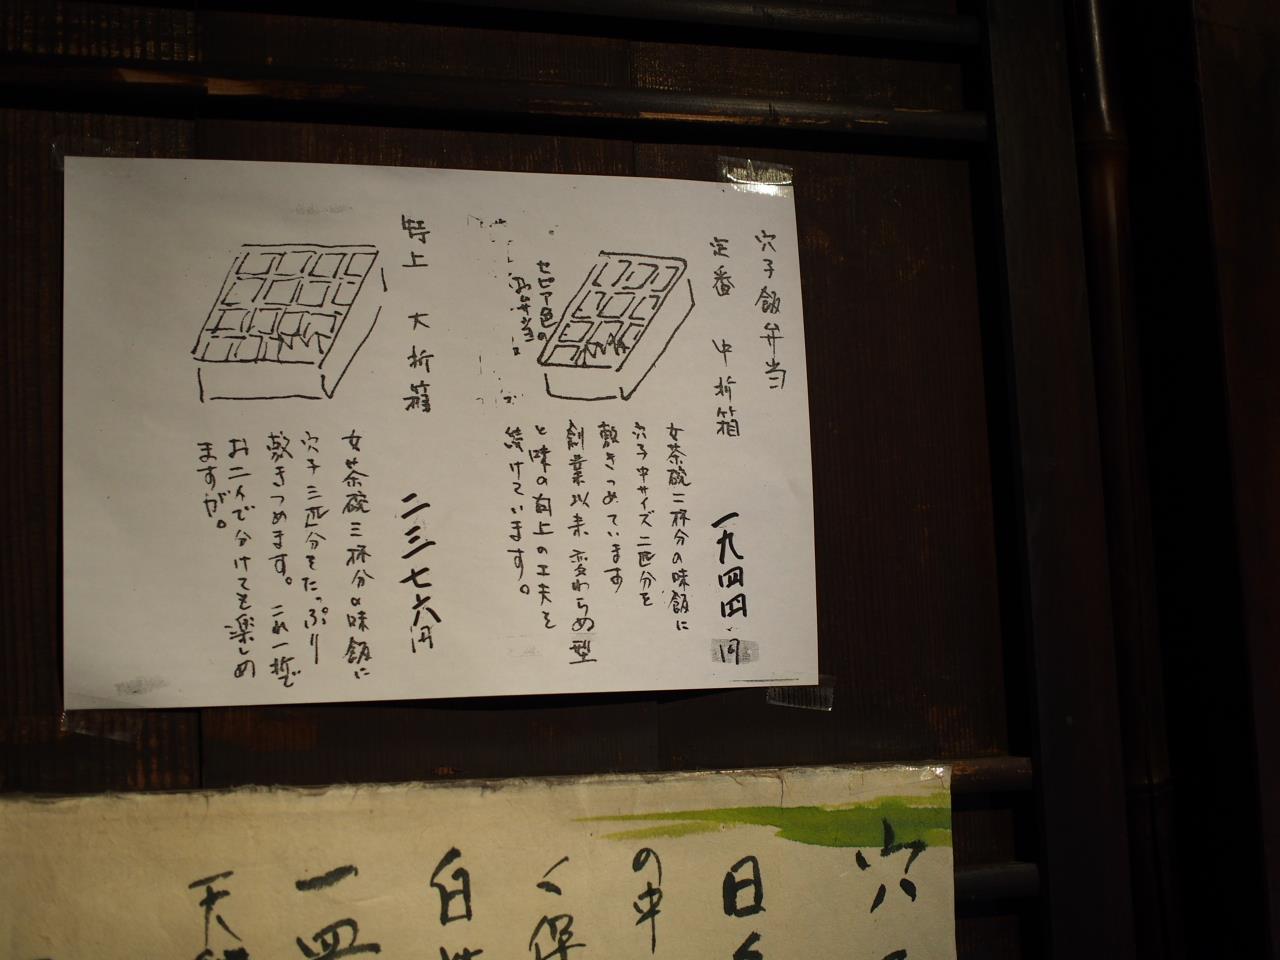 穴子飯弁当
定番 中折箱
一九四四円
女茶碗二杯分の味飯に
穴子中サイズ二匹分を
敷きつめています
創業以来変わらめ型
と味の向上の工夫を
続けています。
セピア色の
特上 大折箱
二三七六円
女茶碗三杯分の味飯に
穴子三匹分をたっぷり
敷きつめます。これ一折で
お二人で分けても楽しめ
ますが。
穴
日
の中
く
白
一四
天